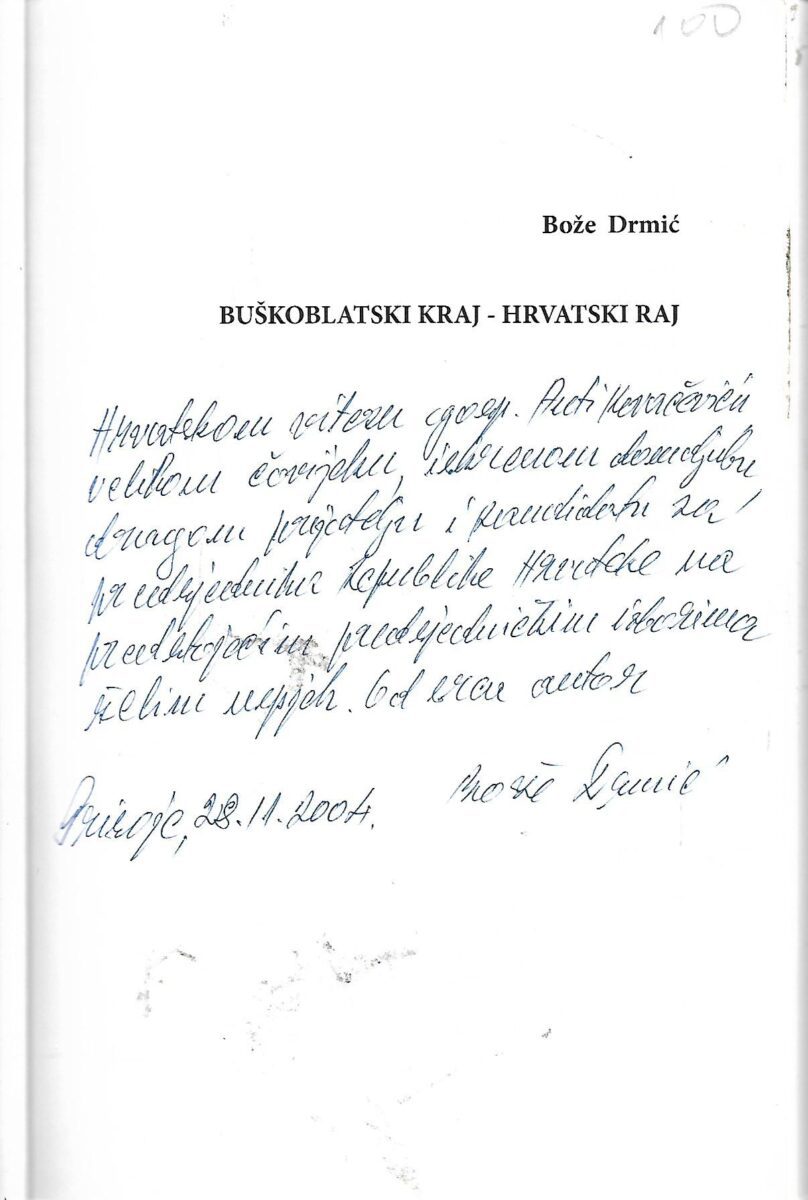 100
Bože Drmić
BUŠKOBLATSKI KRAJ - HRVATSKI RAJ
Hrvatskom vitezu gosp. Anti Kovačeviću
velikom čovjeku, iskrenom domoljubu
dragom prijatelju i kandidatu za
predsjednika Republike Hrvatske na
predstojećim predsjedničkim izborima
želim uspjeh. Od srca autor
Bože Drmić
28.11.2004.